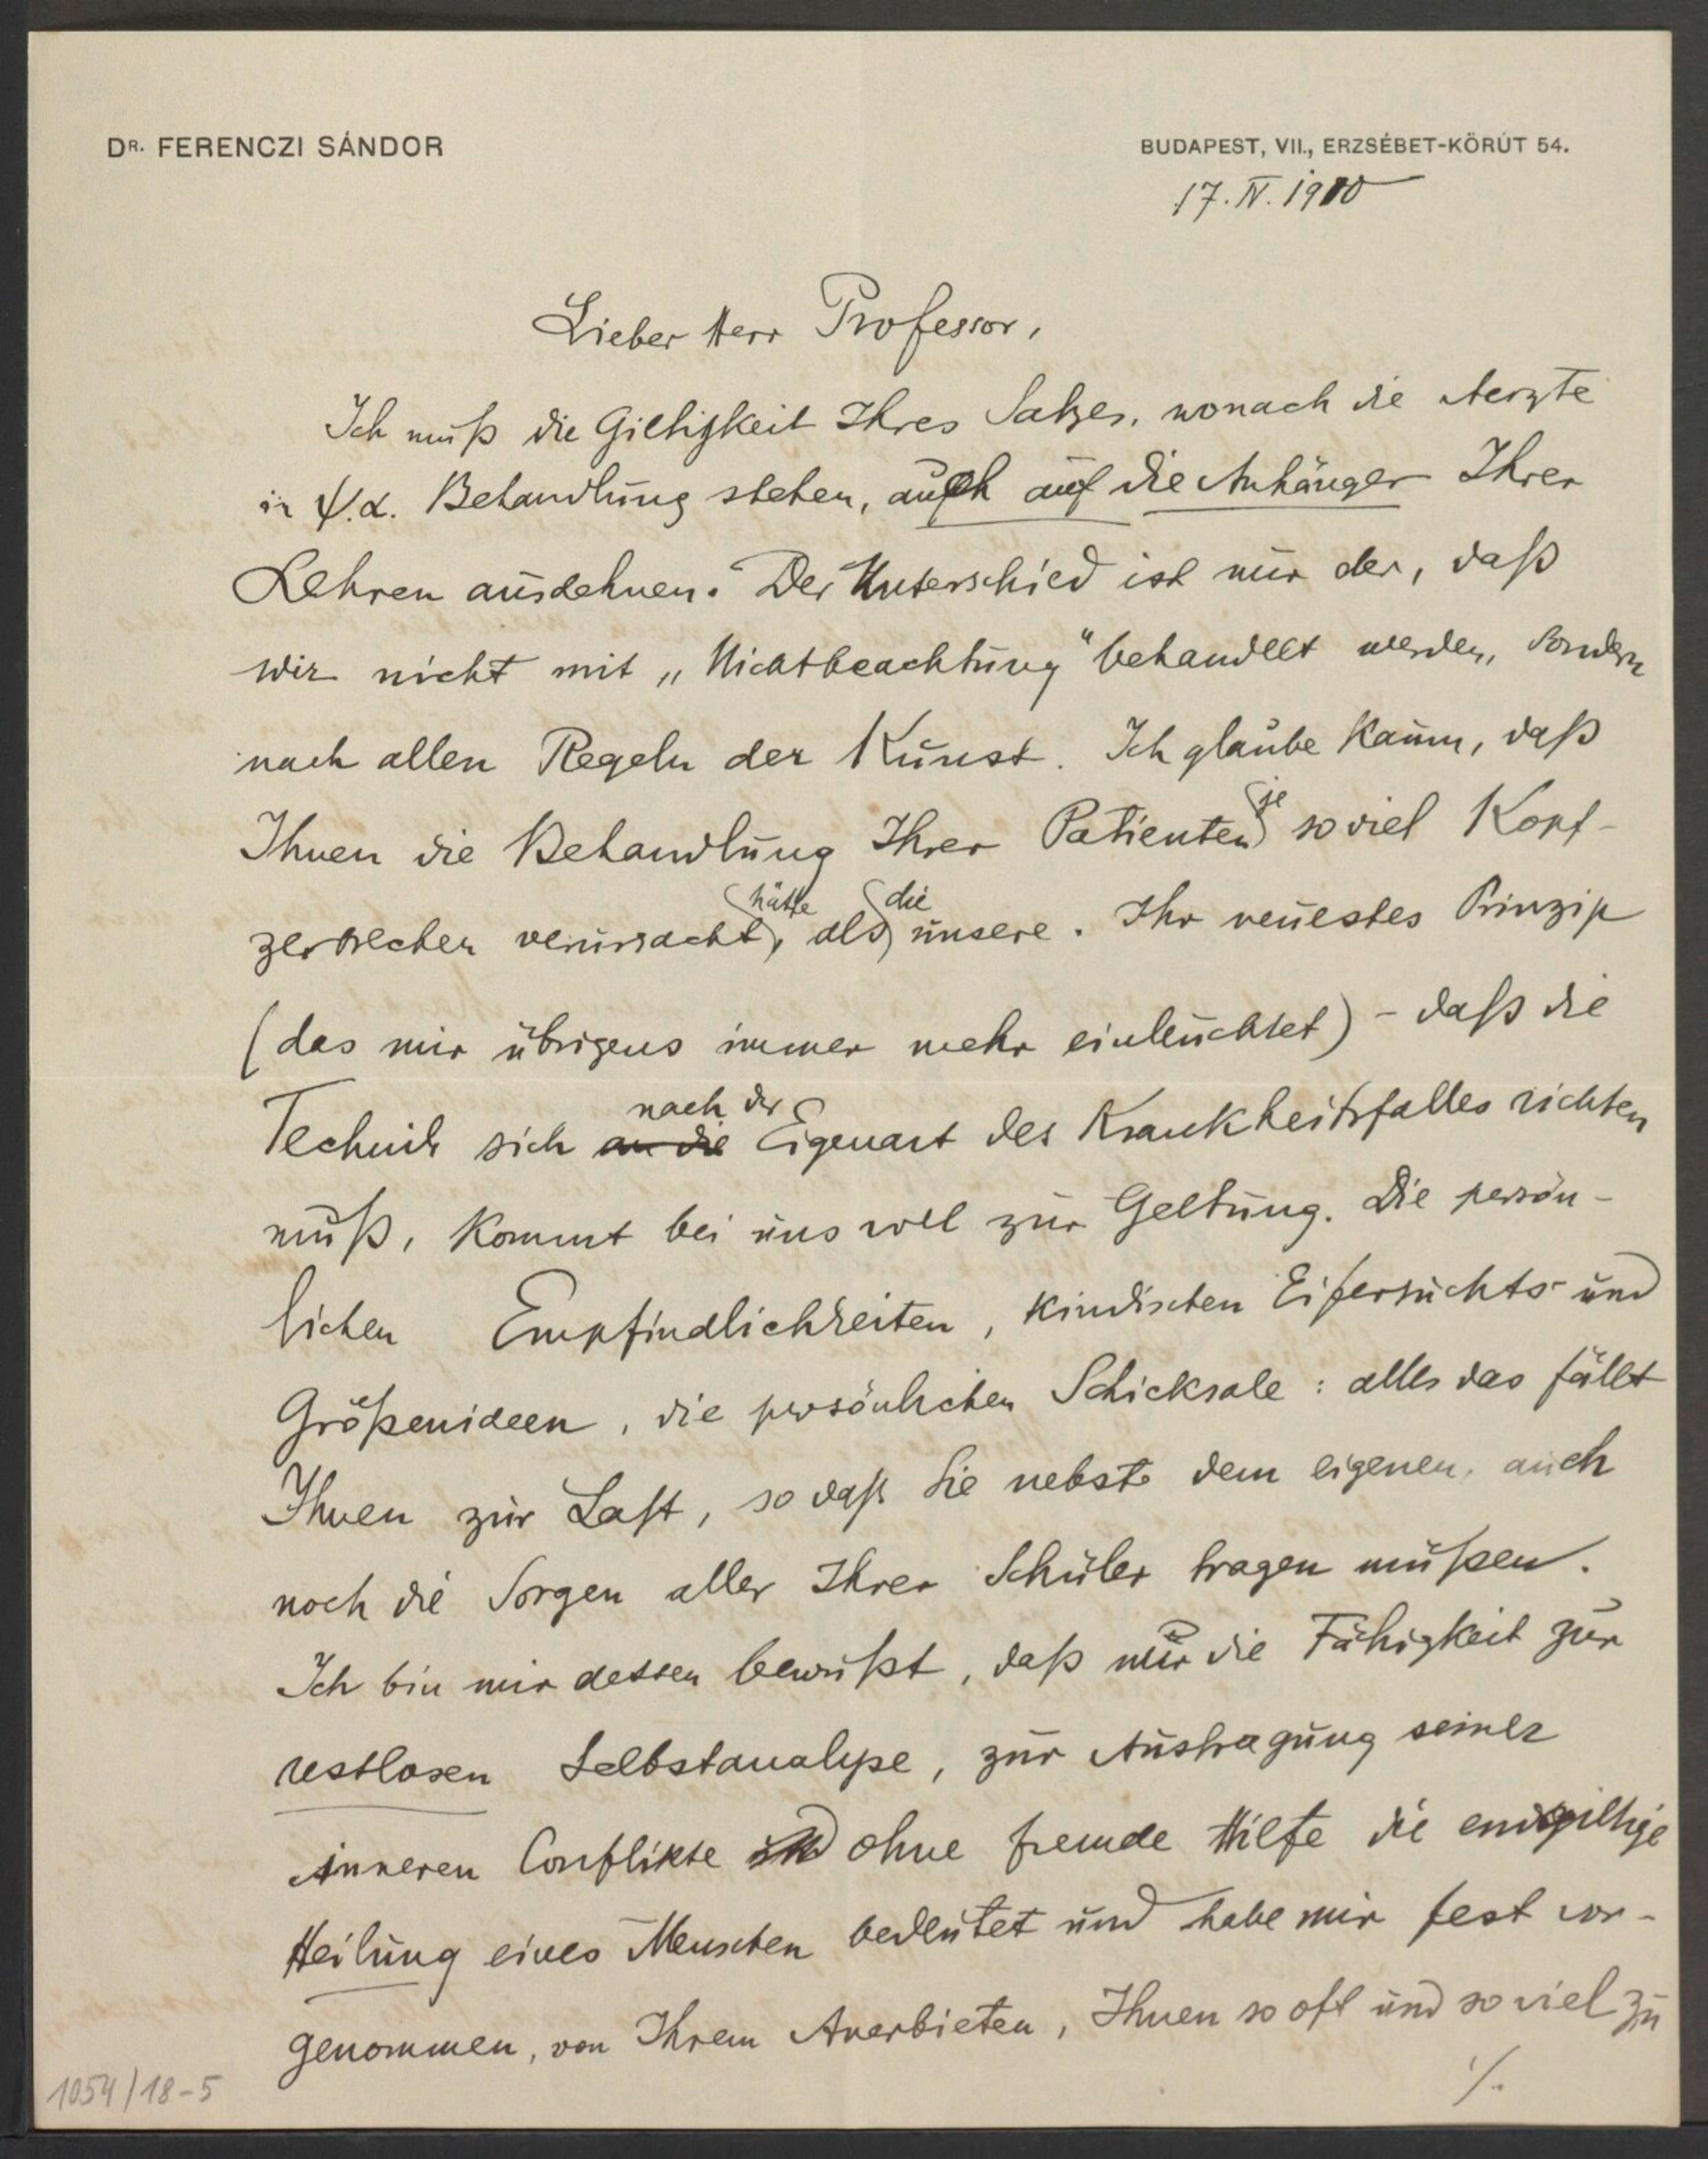 DR. FERENCZI SÁNDOR
BUDAPEST, VII., ERZSÉBET-KÖRÚT 54.
17. IV. 1910
Lieber Herr Professor,
Ich muß die Giltigkeit Ihres Satzes, wonach die Aerzte
in ψ.α. Behandlung stehen, auch auf die Anhänger Ihrer
Lehren ausdehnen. Der Unterschied ist nur der, daß
wir nicht mit „Nichtbeachtung" behandelt werden, sondern
nach allen Regeln der Kunst. Ich glaube kaum, daß
Ihnen die Behandlung Ihrer Patienten je soviel Kopf-
zerbrechen verursacht hätte, als die unsere. Ihr neuestes Prinzip
(das mir übrigens immer mehr einleuchtet) - daß die
Technik sich an die nach der Eigenart des Krankheitsfalles richten
muß, kommt bei uns voll zur Geltung. Die persön-
lichen Empfindlichkeiten, kindischen Eifersuchts- und
Größenideen, die persönlichen Schicksale: alles das fällt
Ihnen zur Last, so daß Sie nebst dem eigenen, auch
noch die Sorgen aller Ihrer Schüler tragen müßen.
Ich bin mir dessen bewußt, daß nur die Fähigkeit zur
restlosen Selbstanalyse, zur Austragung seiner
inneren Conflikte ohne fremde Hilfe die endgiltige
Heilung eines Menschen bedeutet und habe mir fest vor-
genommen, von Ihrem Anerbieten, Ihnen so oft und so viel zu
./.
1054/18-5